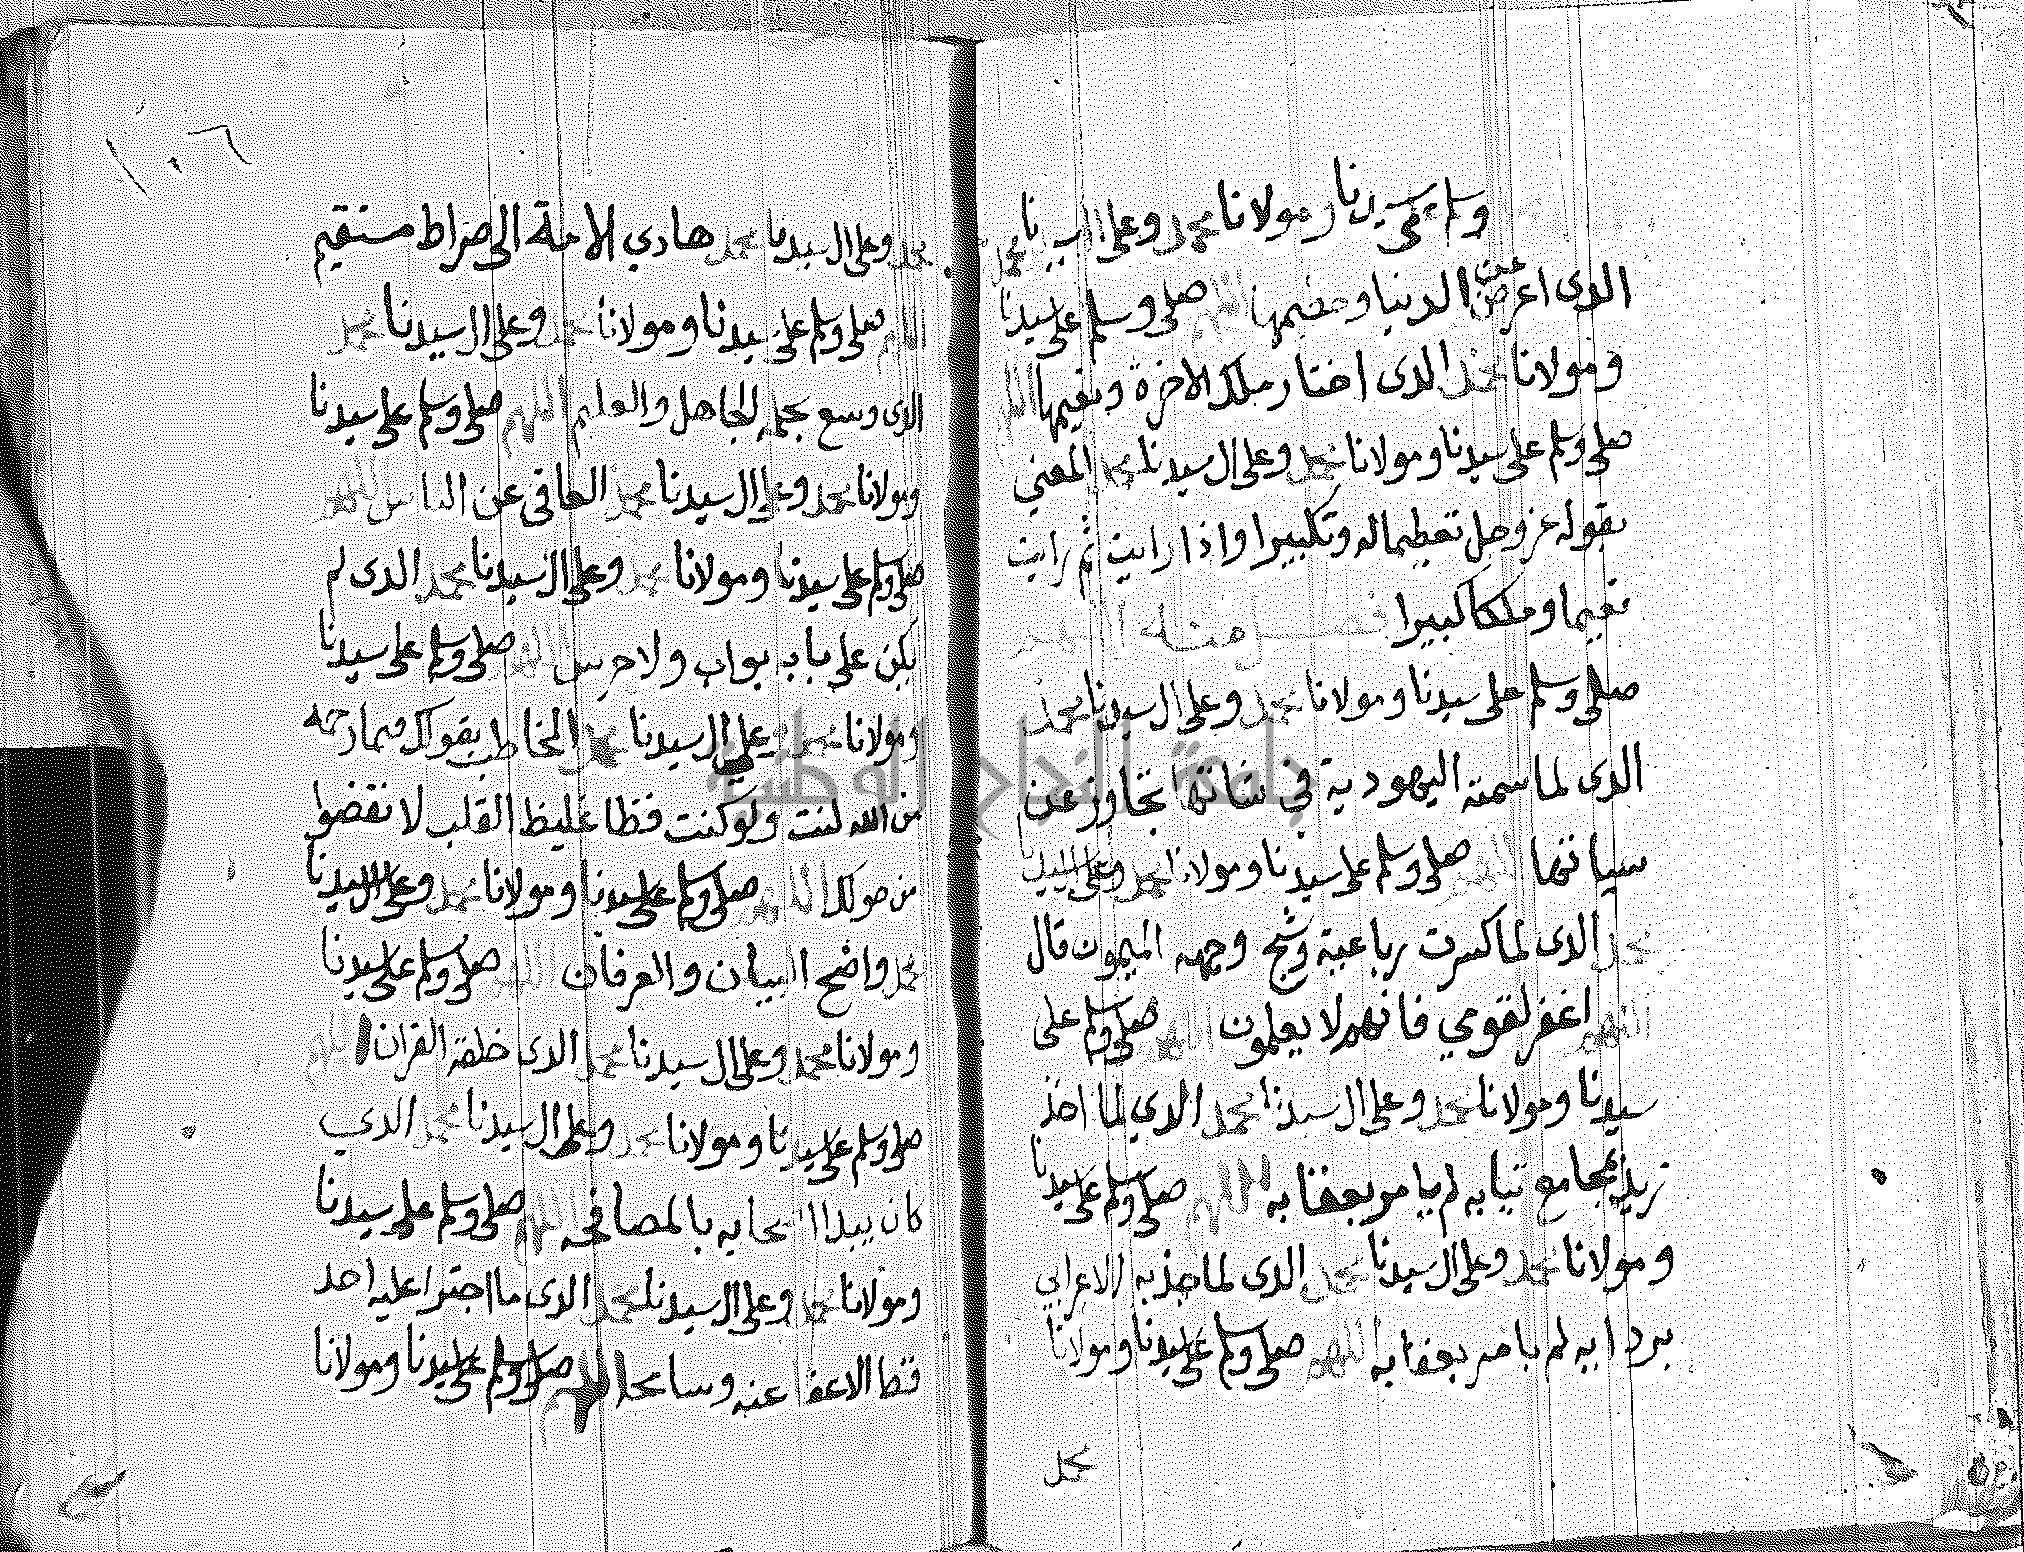 وسلم على سيدنا ومولانا محمد وعلى ال سيدنا محمد
الذى اعرض عن الدنيا و اللهم صلى وسلم على سيدنا
ومولانا محمد الذى اختار ملك الاخرة ونعيمها اللهم
صلى وسلم على سيدنا ومولانا محمد وعلى ال سيدنا محمد المعني
بقوله عز وجل تعظيما له وتكبيرا واذا رايت ثم رايت
نعيما وملكا كبيرا اللهم
صلى وسلم على سيدنا ومولانا محمد وعلى ال سيدنا محمد
الذى لما سمته اليهودية في تجاوز عن
اللهم صلى وسلم على سيدنا ومولانا محمد وعلى ال سيدنا
محمد الذى لما كسرت رباعيته وشج وجهه الميمون قال
اللهم اغفر لقومي فانهم لا يعلمون اللهم صلى وسلم على
سيدنا ومولانا محمد وعلى ال سيدنا محمد الذي لما اخذ
بمجامع ثيابه لم يامر بعقابه اللهم صلى وسلم على سيدنا
ومولانا محمد وعلى ال سيدنا محمد الذى لما جذبه الاعرابي
بردايه لم يامر بعقابه اللهم صلى وسلم على سيدنا ومولانا
محمد
١٠٦
محمد وعلى ال سيدنا محمد هادي الامة الى صراط مستقيم
اللهم صلى وسلم على سيدنا ومولانا محمد وعلى ال سيدنا محمد
الذى وسع بحلمه الجاهل والعليم اللهم صلى وسلم على سيدنا
ومولانا محمد وعلى ال سيدنا محمد العافى عن الناس اللهم
صلى وسلم على سيدنا ومولانا محمد وعلى ال سيدنا محمد الذى لم
يكن على بابه بواب ولا حرس اللهم صلى وسلم على سيدنا
ومولانا محمد وعلى ال سيدنا محمد المخاطب بقولك فبما رحمه
من الله لنت ولو كنت فظا غليظ القلب لانفضوا
من حولك اللهم صلى وسلم على سيدنا ومولانا محمد وعلى ال سيدنا
محمد واضح البيان والعرفان اللهم صلى وسلم على سيدنا
ومولانا محمد وعلى ال سيدنا محمد الذى خلقه القران اللهم
صلى وسلم على سيدنا ومولانا محمد وعلى ال سيدنا محمد الذي
كان يبدا اصحابه بالمصافحه اللهم صلى وسلم على سيدنا
ومولانا محمد وعلى ال سيدنا محمد الذى ما اجترا عليه احد
قط الا عفا عنه وسامحه اللهم صلى وسلم على سيدنا ومولانا
جامعة النجاح الوطنية